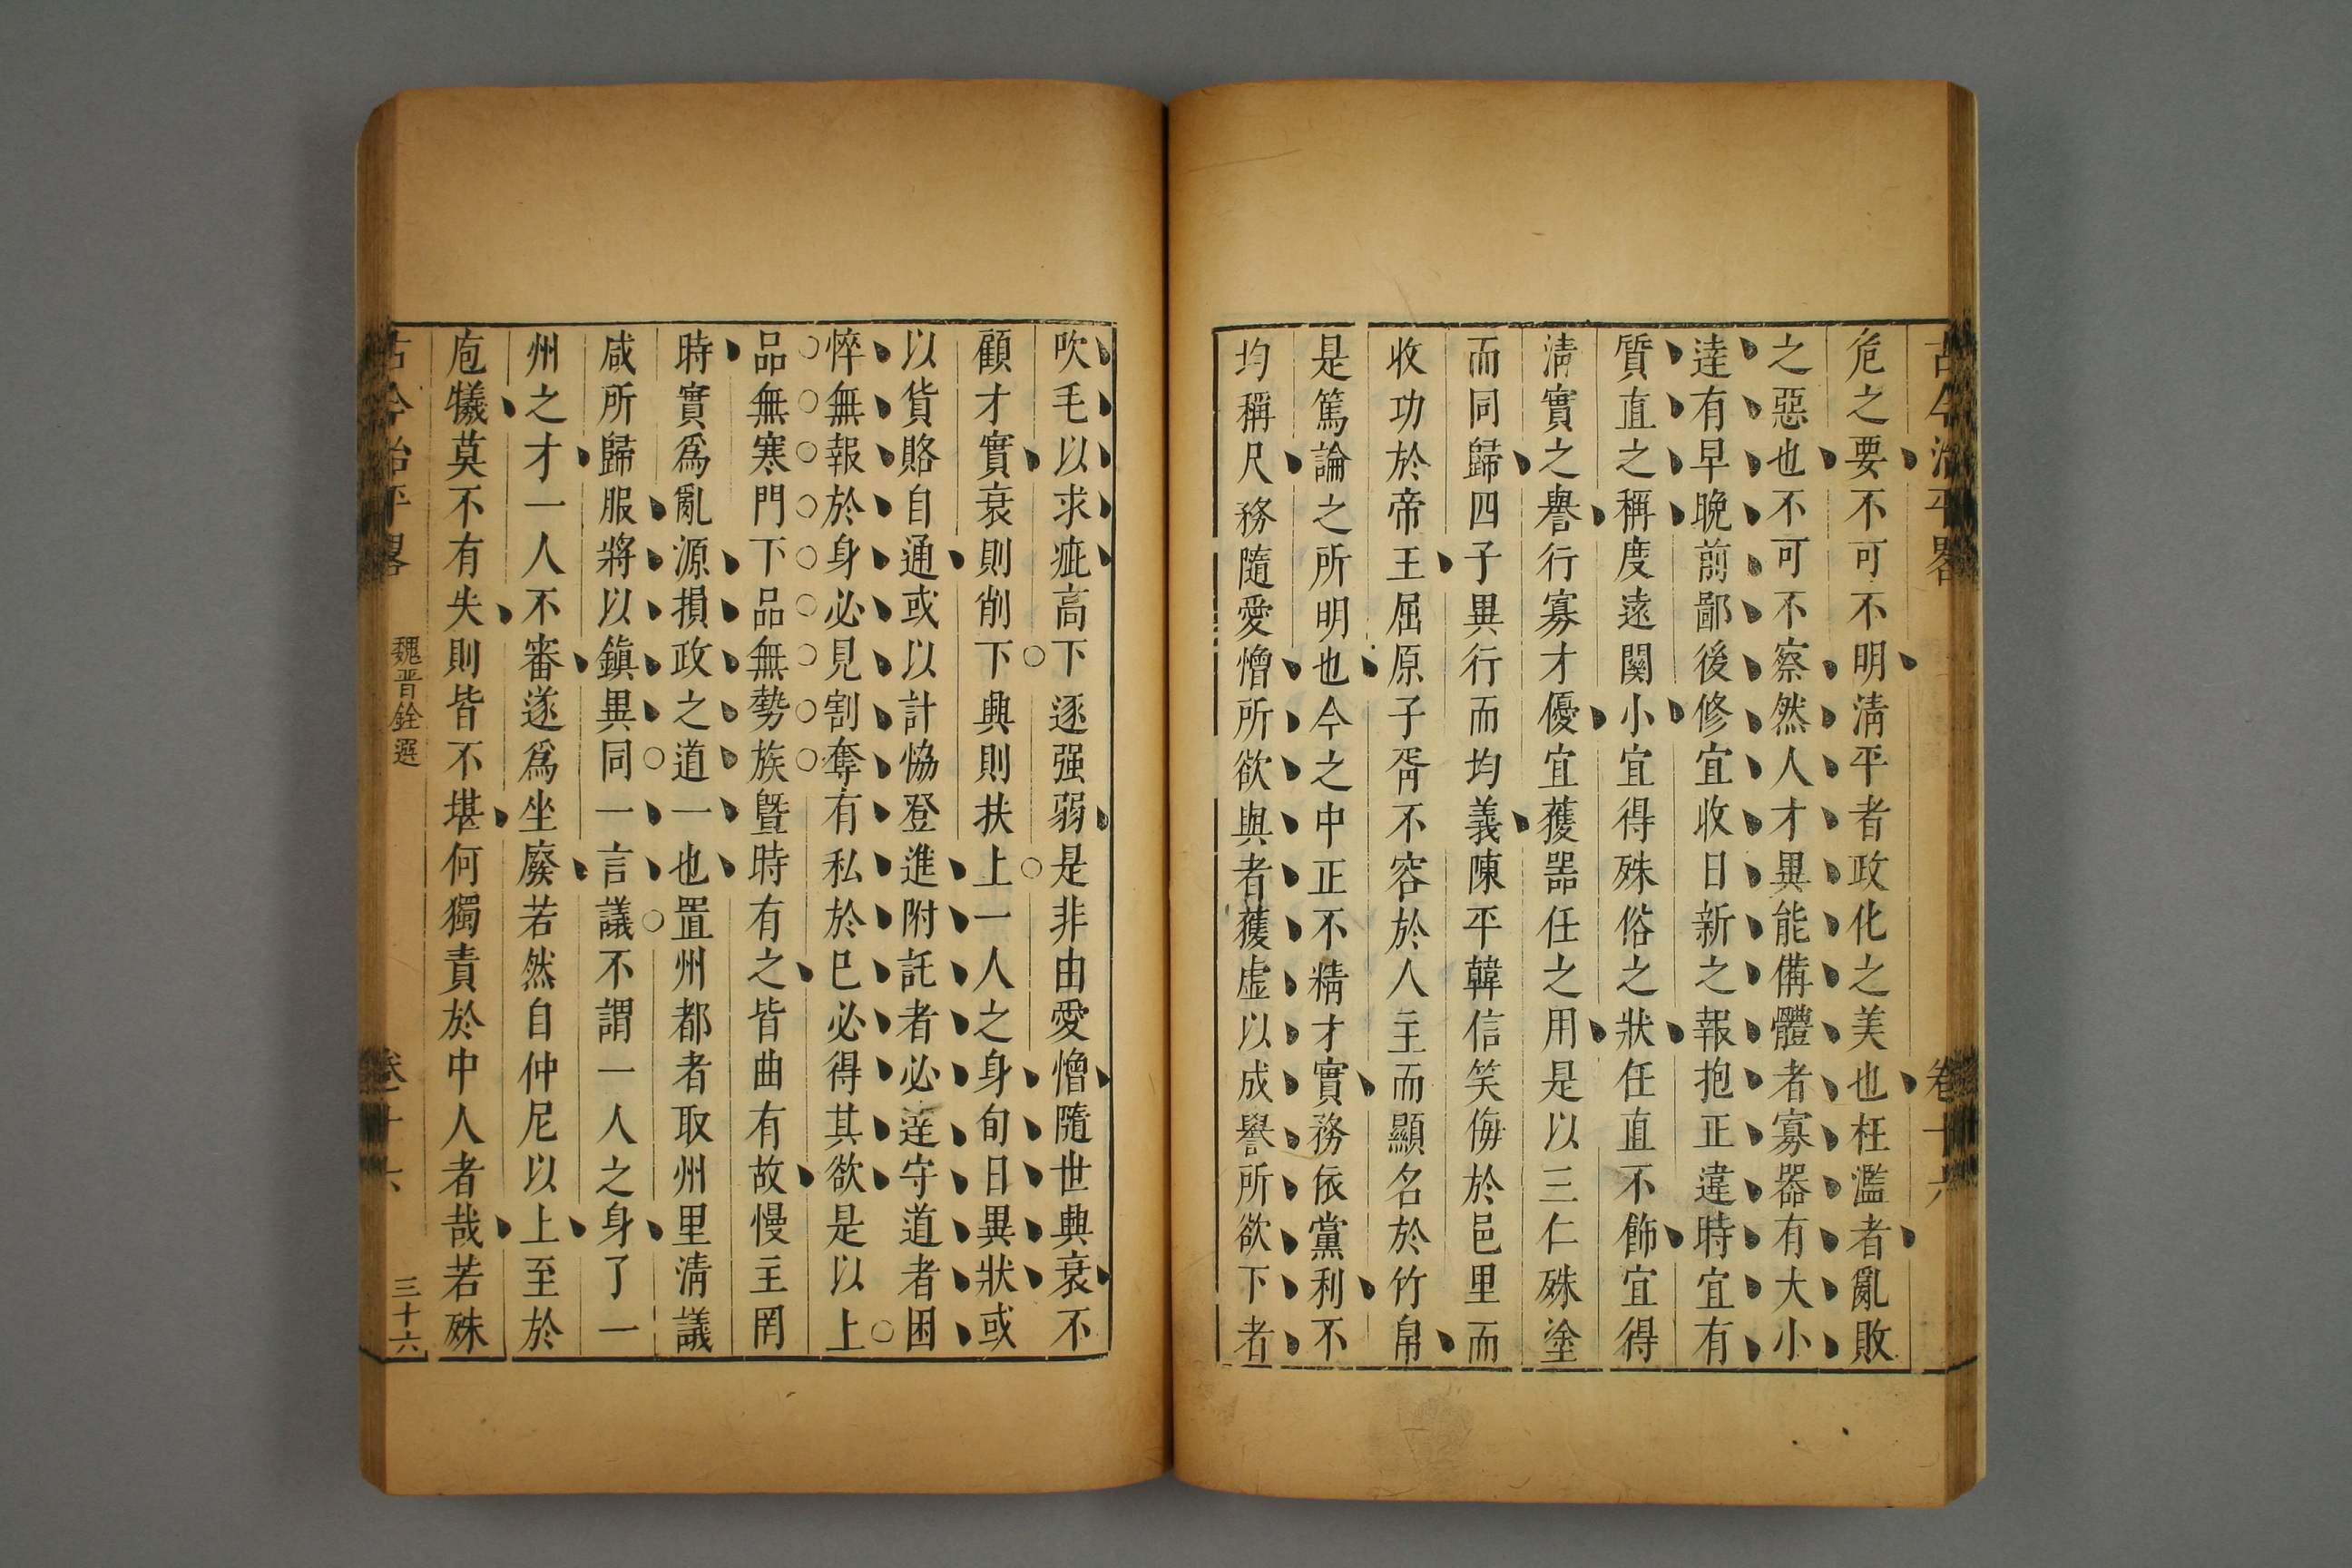 古今治平畧 卷十六
危之要不可不明淸平者政化之美也枉濫者亂敗
之惡也不可不察然人才異能備體者寡器有大小
達有早晚前鄙後修宜收日新之報抱正違時宜有
質直之稱度遠闕小宜得殊俗之狀任直不飾宜得
淸實之譽行寡才優宜獲器任之用是以三仁殊塗
而同歸四子異行而均義陳平韓信笑侮於邑里而
收功於帝王屈原子胥不容於人主而顯名於竹帛
是篤論之所明也今之中正不精才實務依黨利不
均稱尺務隨愛憎所欲與者獲虛以成譽所欲下者
吹毛以求疵高下逐强弱是非由愛憎隨世興衰不
顧才實衰則削下興則扶上一人之身旬日異狀或
以貨賂自通或以計恊登進附託者必達守道者困
悴無報於身必見割奪有私於已必得其欲是以上
品無寒門下品無勢族暨時有之皆曲有故慢主罔
時實爲亂源損政之道一也置州都者取州里淸議
咸所歸服將以鎭異同一言議不謂一人之身了一
州之才一人不審遂爲坐廢若然自仲尼以上至於
庖犧莫不有失則皆不堪何獨責於中人者哉若殊
古今治平畧 魏晋銓選 卷十六 三十六